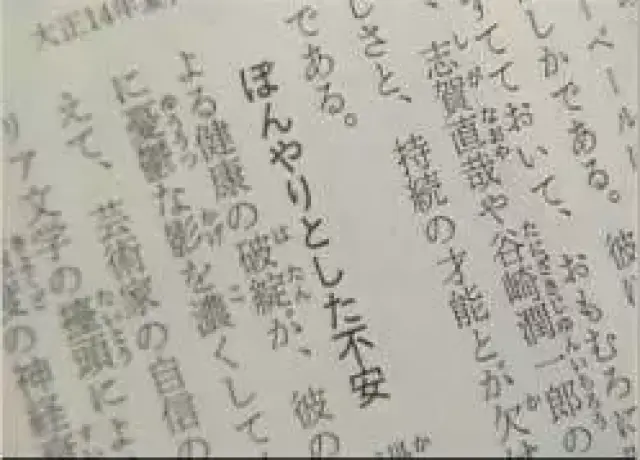 ベール
しかである。彼
すてておいて、おもむろに
志賀直哉や谷崎潤一郎の
しさと、持続の才能とが欠
である。
ぼんやりとした不安
よる健康の破綻が、彼の
に憂鬱な影を濃くして
えて、芸術家の自信の
リア文学の擡頭によ
の神経
大正14年